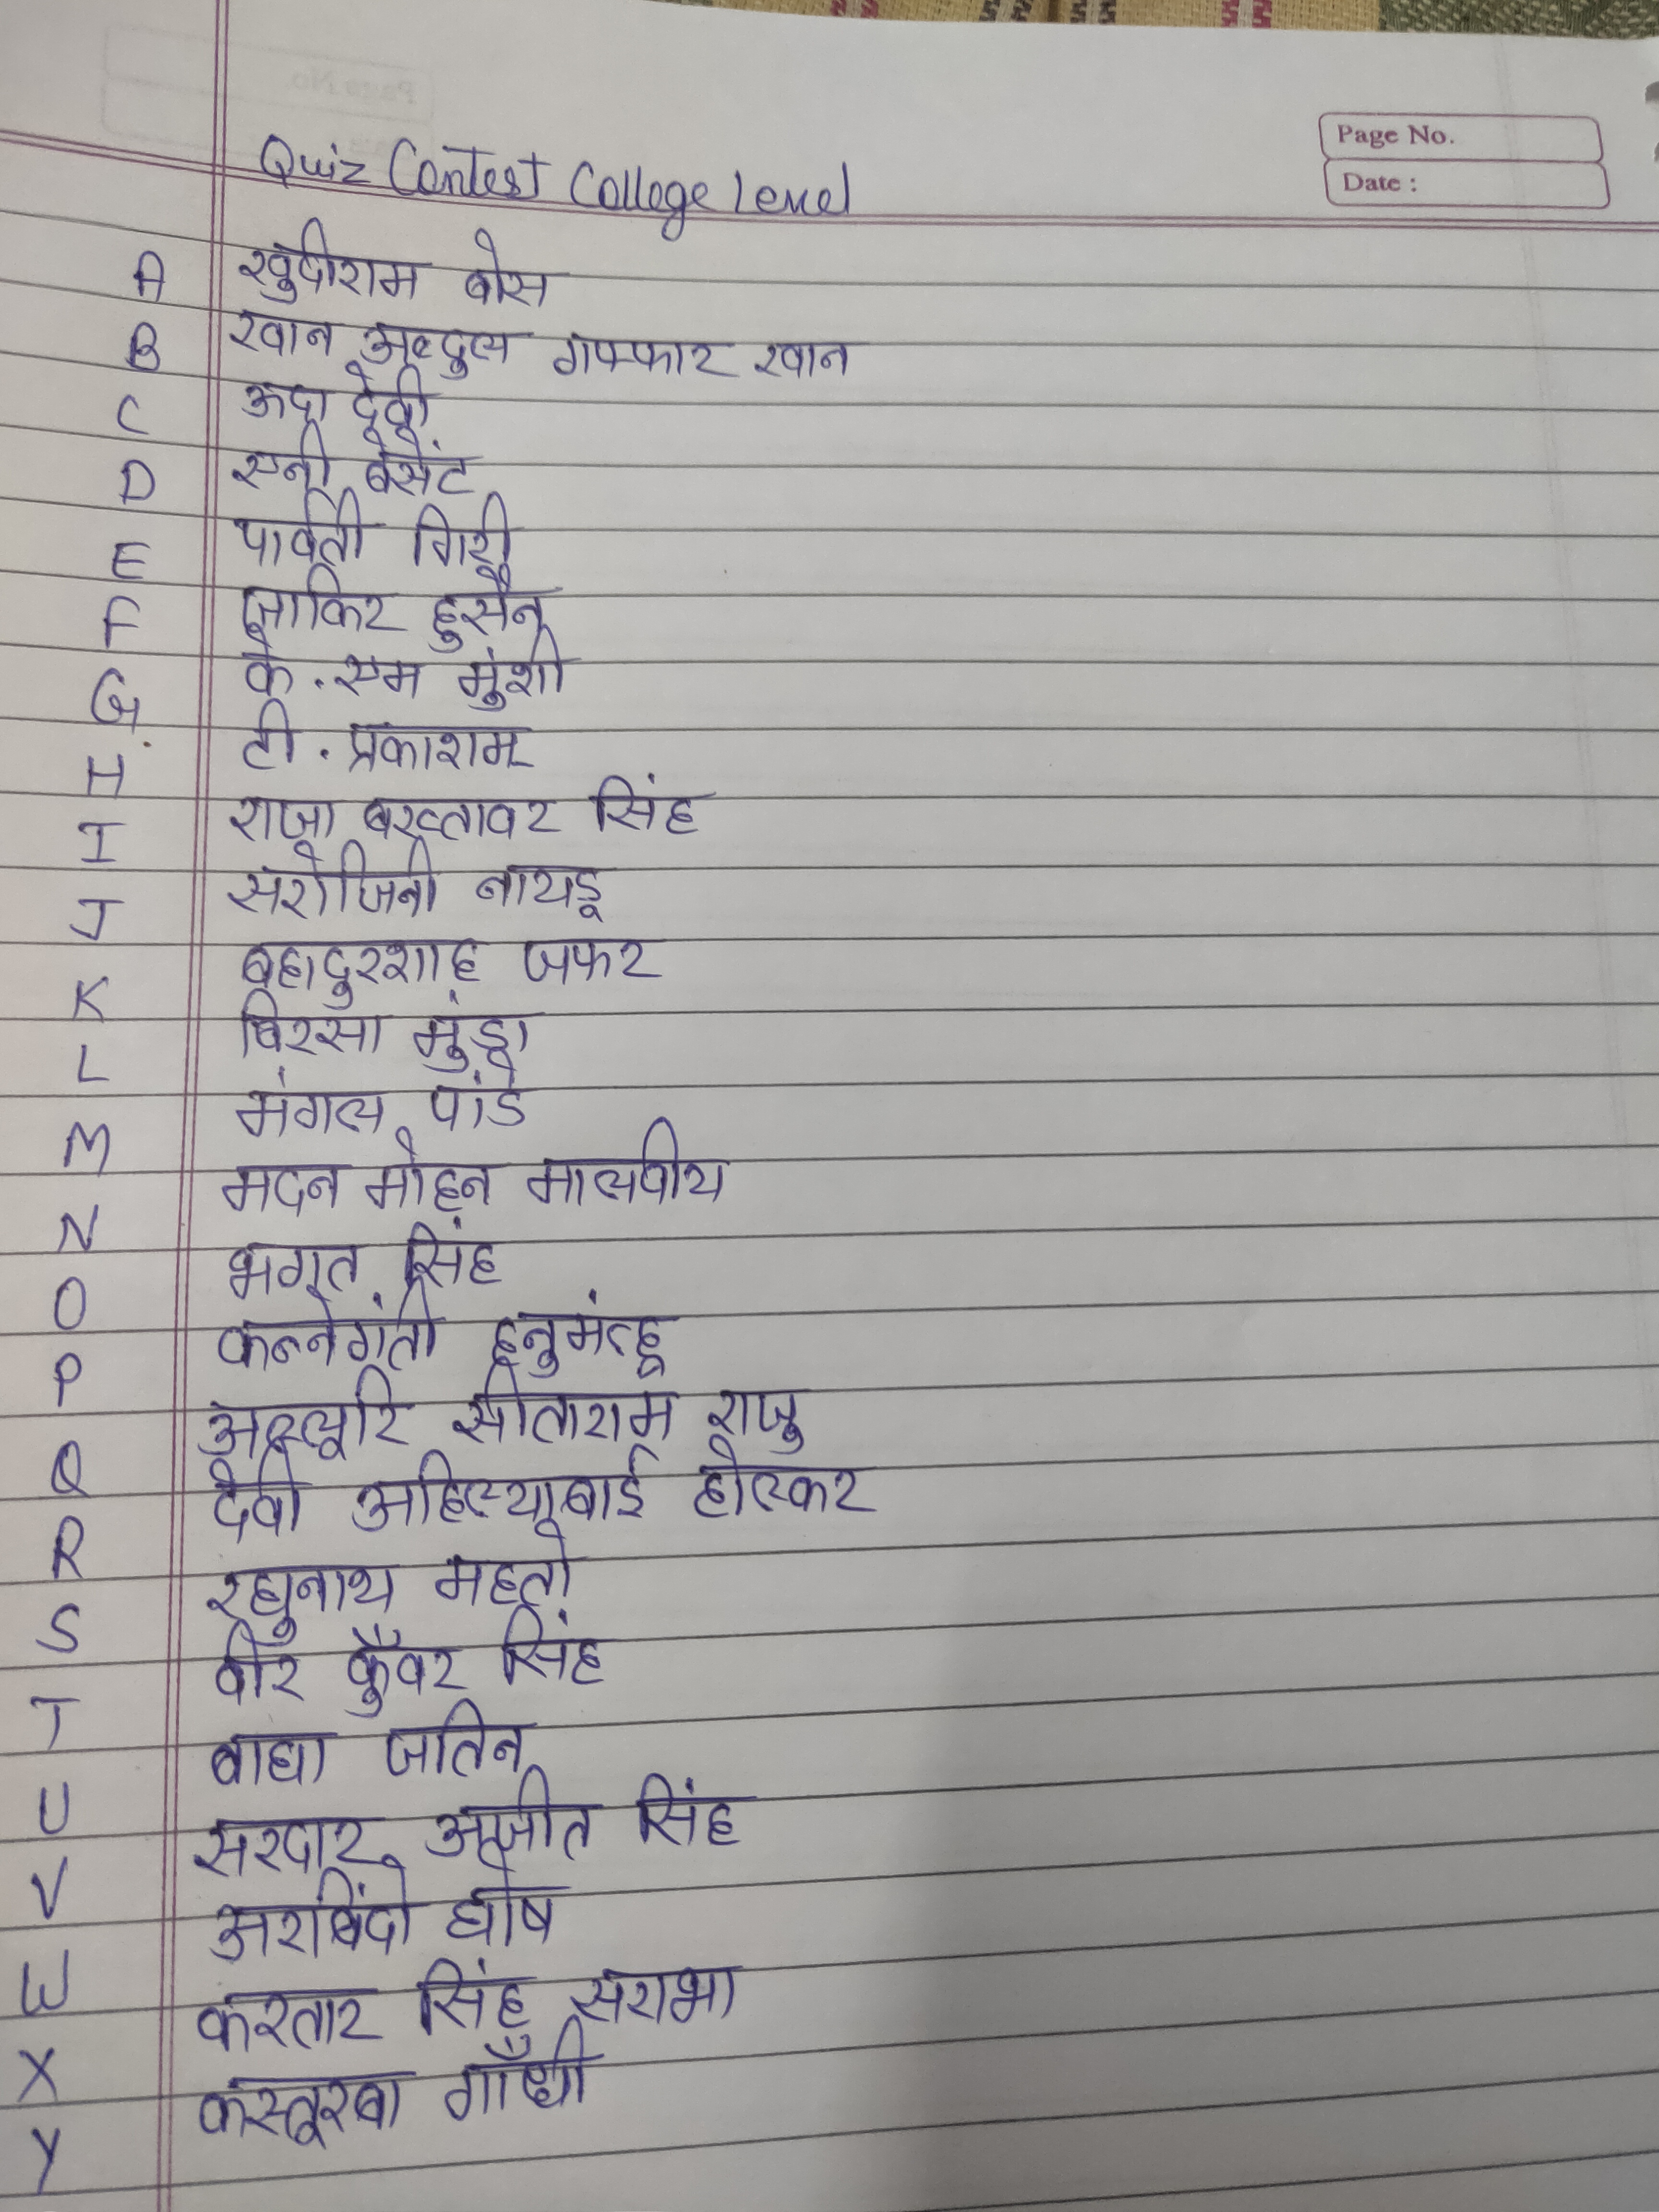 Page No.
Date :
Quiz Contest College Level
A खुदीराम बोस
B खान अब्दुल गफ्फार खान
C ऊदा देवी
D एनी बेसेंट
E पार्वती गिरी
F ज़ाकिर हुसैन
G के. एम मुंशी
H टी. प्रकाशम
I राजा बख्तावर सिंह
J सरोजिनी नायडू
K बहादुरशाह जफर
L बिरसा मुंडा
M मंगल पांडे
N मदन मोहन मालवीय
O भगत सिंह
P कन्नेगंती हनुमंत्हू
Q अल्लूरि सीताराम राजु
R देवी अहिल्याबाई होल्कर
S रघुनाथ महतो
T वीर कुँवर सिंह
U बाघा जतिन
V सरदार अजीत सिंह
W अरबिंदो घोष
X करतार सिंह सराभा
Y कस्तूरबा गाँधी